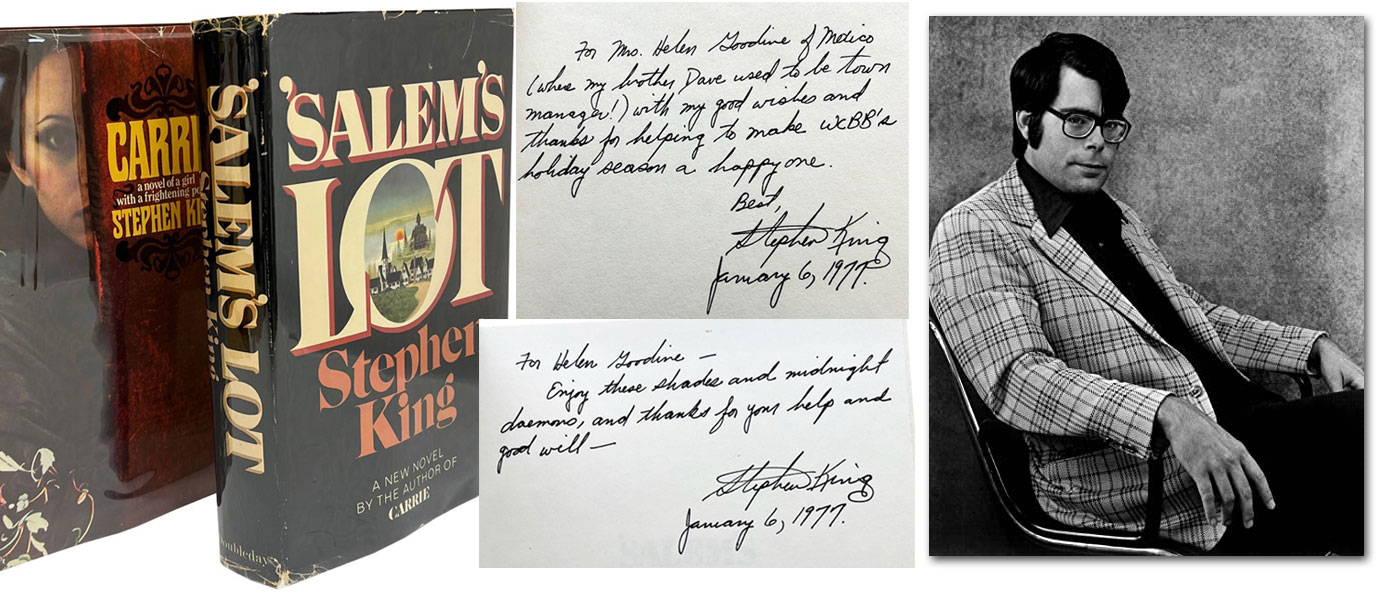 CARRI
a novel of a girl
with a frightening po
STEPHEN KI
'SALEM'S LOT
Stephen King
oubleday
'SALEM'S
LOT
Stephen
King
A NEW NOVEL
BY THE AUTHOR OF
CARRIE
For Mrs. Helen Goodine of Mexico
(where my brother, Dave used to be town
manager!) with my good wishes and
thanks for helping to make WCBB's
holiday season a happy one.
Best,
Stephen King
January 6, 1977.
For Helen Goodine —
Enjoy these shades and midnight
daemons, and thanks for your help and
good will —
Stephen King
January 6, 1977.
'SALEM'S